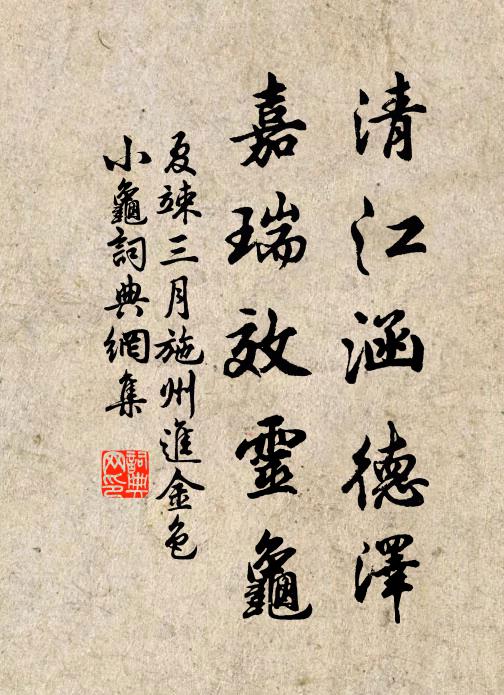 清江涵德澤
嘉瑞效靈龜
夏竦三月施州進金色
小龜詞典網集
詞典
网印